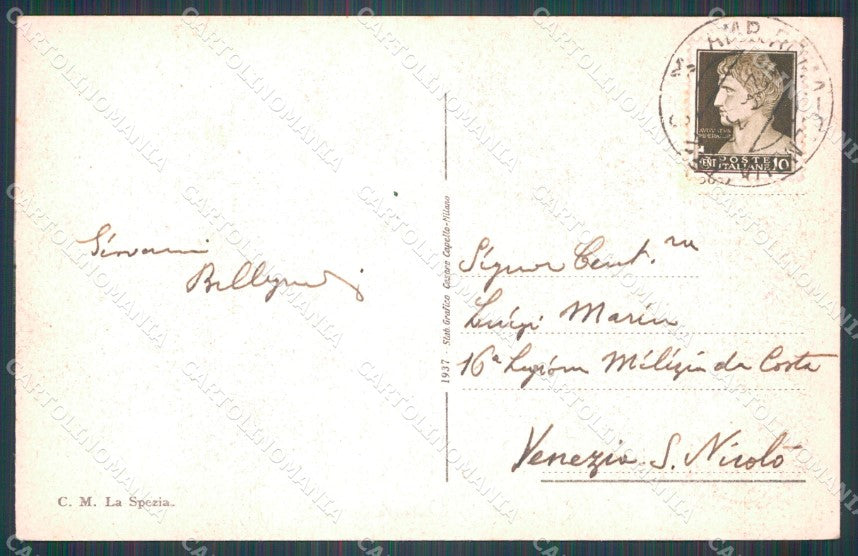 AMB. ROMA-
POSTE
ITALIANE
CENT
10
Giovanni
Signor Cent.ra
Luigi Marin
16ª Legione Milizia da Costa
Venezia S. Nicolò
1937 Stab. Grafico Cesare Capello-Milano
C. M. La Spezia.
CARTOLINOMANIA